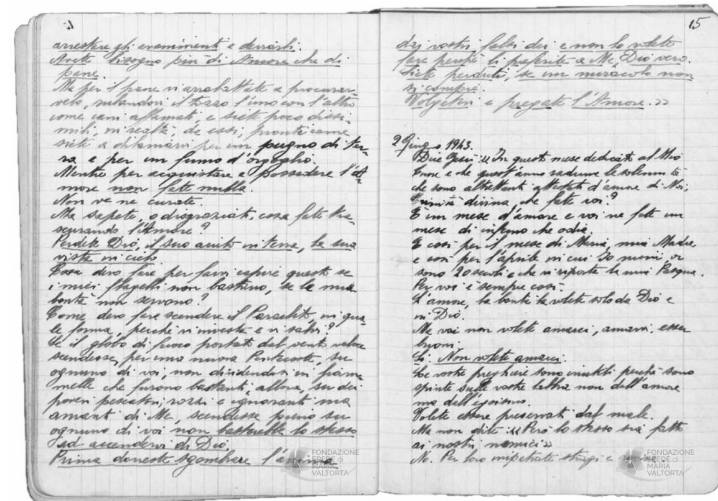 arrestare gli avvenimenti e deviarli.
Avete bisogno più di Amore che di
pane.
Ma per il pane vi arrabbattate a procurar-
velo, rubandovi il tozzo l'uno con l'altro
come cani affamati e siete poco dissi-
mili, in realtà, da essi, pronti come
siete a dilaniarvi per un pugno di ter-
ra e per un fumo d'orgoglio.
Mentre per acquistare e possedere l'A-
more non fate nulla.
Non ve ne curate.
Ma sapete, o disgraziati, cosa fate tra-
scurando l'Amore?
Perdete Dio, il suo aiuto in terra, la sua
vista in cielo.
Cosa devo fare per farvi capire questo se
i miei flagelli non bastano, se la mia
bontà non serve?
Come devo fare scendere il Paraclito, in qua-
le forma, perché v'investa e vi salvi?
Se il globo di fuoco portato dal vento veloce
scendesse, per una nuova Pentecoste, su
ognuno di voi, non dividendosi in fiam-
melle che furono bastanti, allora, su dei
poveri pescatori rozzi e ignoranti ma
amanti di Me, scendesse puro su
ognuno di voi non basterebbe lo stesso
ad accendervi di Dio.
Prima dovreste sgomberare l'anima
15
dei vostri falsi dei e non lo volete
fare perché li preferite a Me, Dio vero.
Siete perduti, se un miracolo non
si compie.
Volgetevi e pregate l'Amore.»
2 Giugno 1943.
Dice Gesù: «In questo mese dedicato al Mio
Cuore e che quest'anno raduna le solennità
che sono altrettanti attestati d'amore di Noi,
Trinità divina, che fate voi?
È un mese d'amore e voi ne fate un
mese di inferno che odia.
E così per il mese di Maria, mia Madre
e così per l'aprile in cui Io morii, or
sono 20 secoli e che vi riporta la mia Pasqua.
Per voi è sempre così.
L'amore, la bontà la volete solo da Dio e
in Dio.
Ma voi non volete amarci, amarvi, esser
buoni.
Sì. Non volete amarci.
Le vostre preghiere sono inutili perché sono
spinte sulle vostre labbra non dall'amore
ma dall'egoismo.
Volete essere preservati dal male.
Ma non dite: «Però lo stesso sia fatto
ai nostri nemici».
No. Per loro impetrate stragi e
FONDAZIONE
EREDE DI
MARIA
VALTORTA
FONDAZIONE
EREDE DI
MARIA
VALTORTA